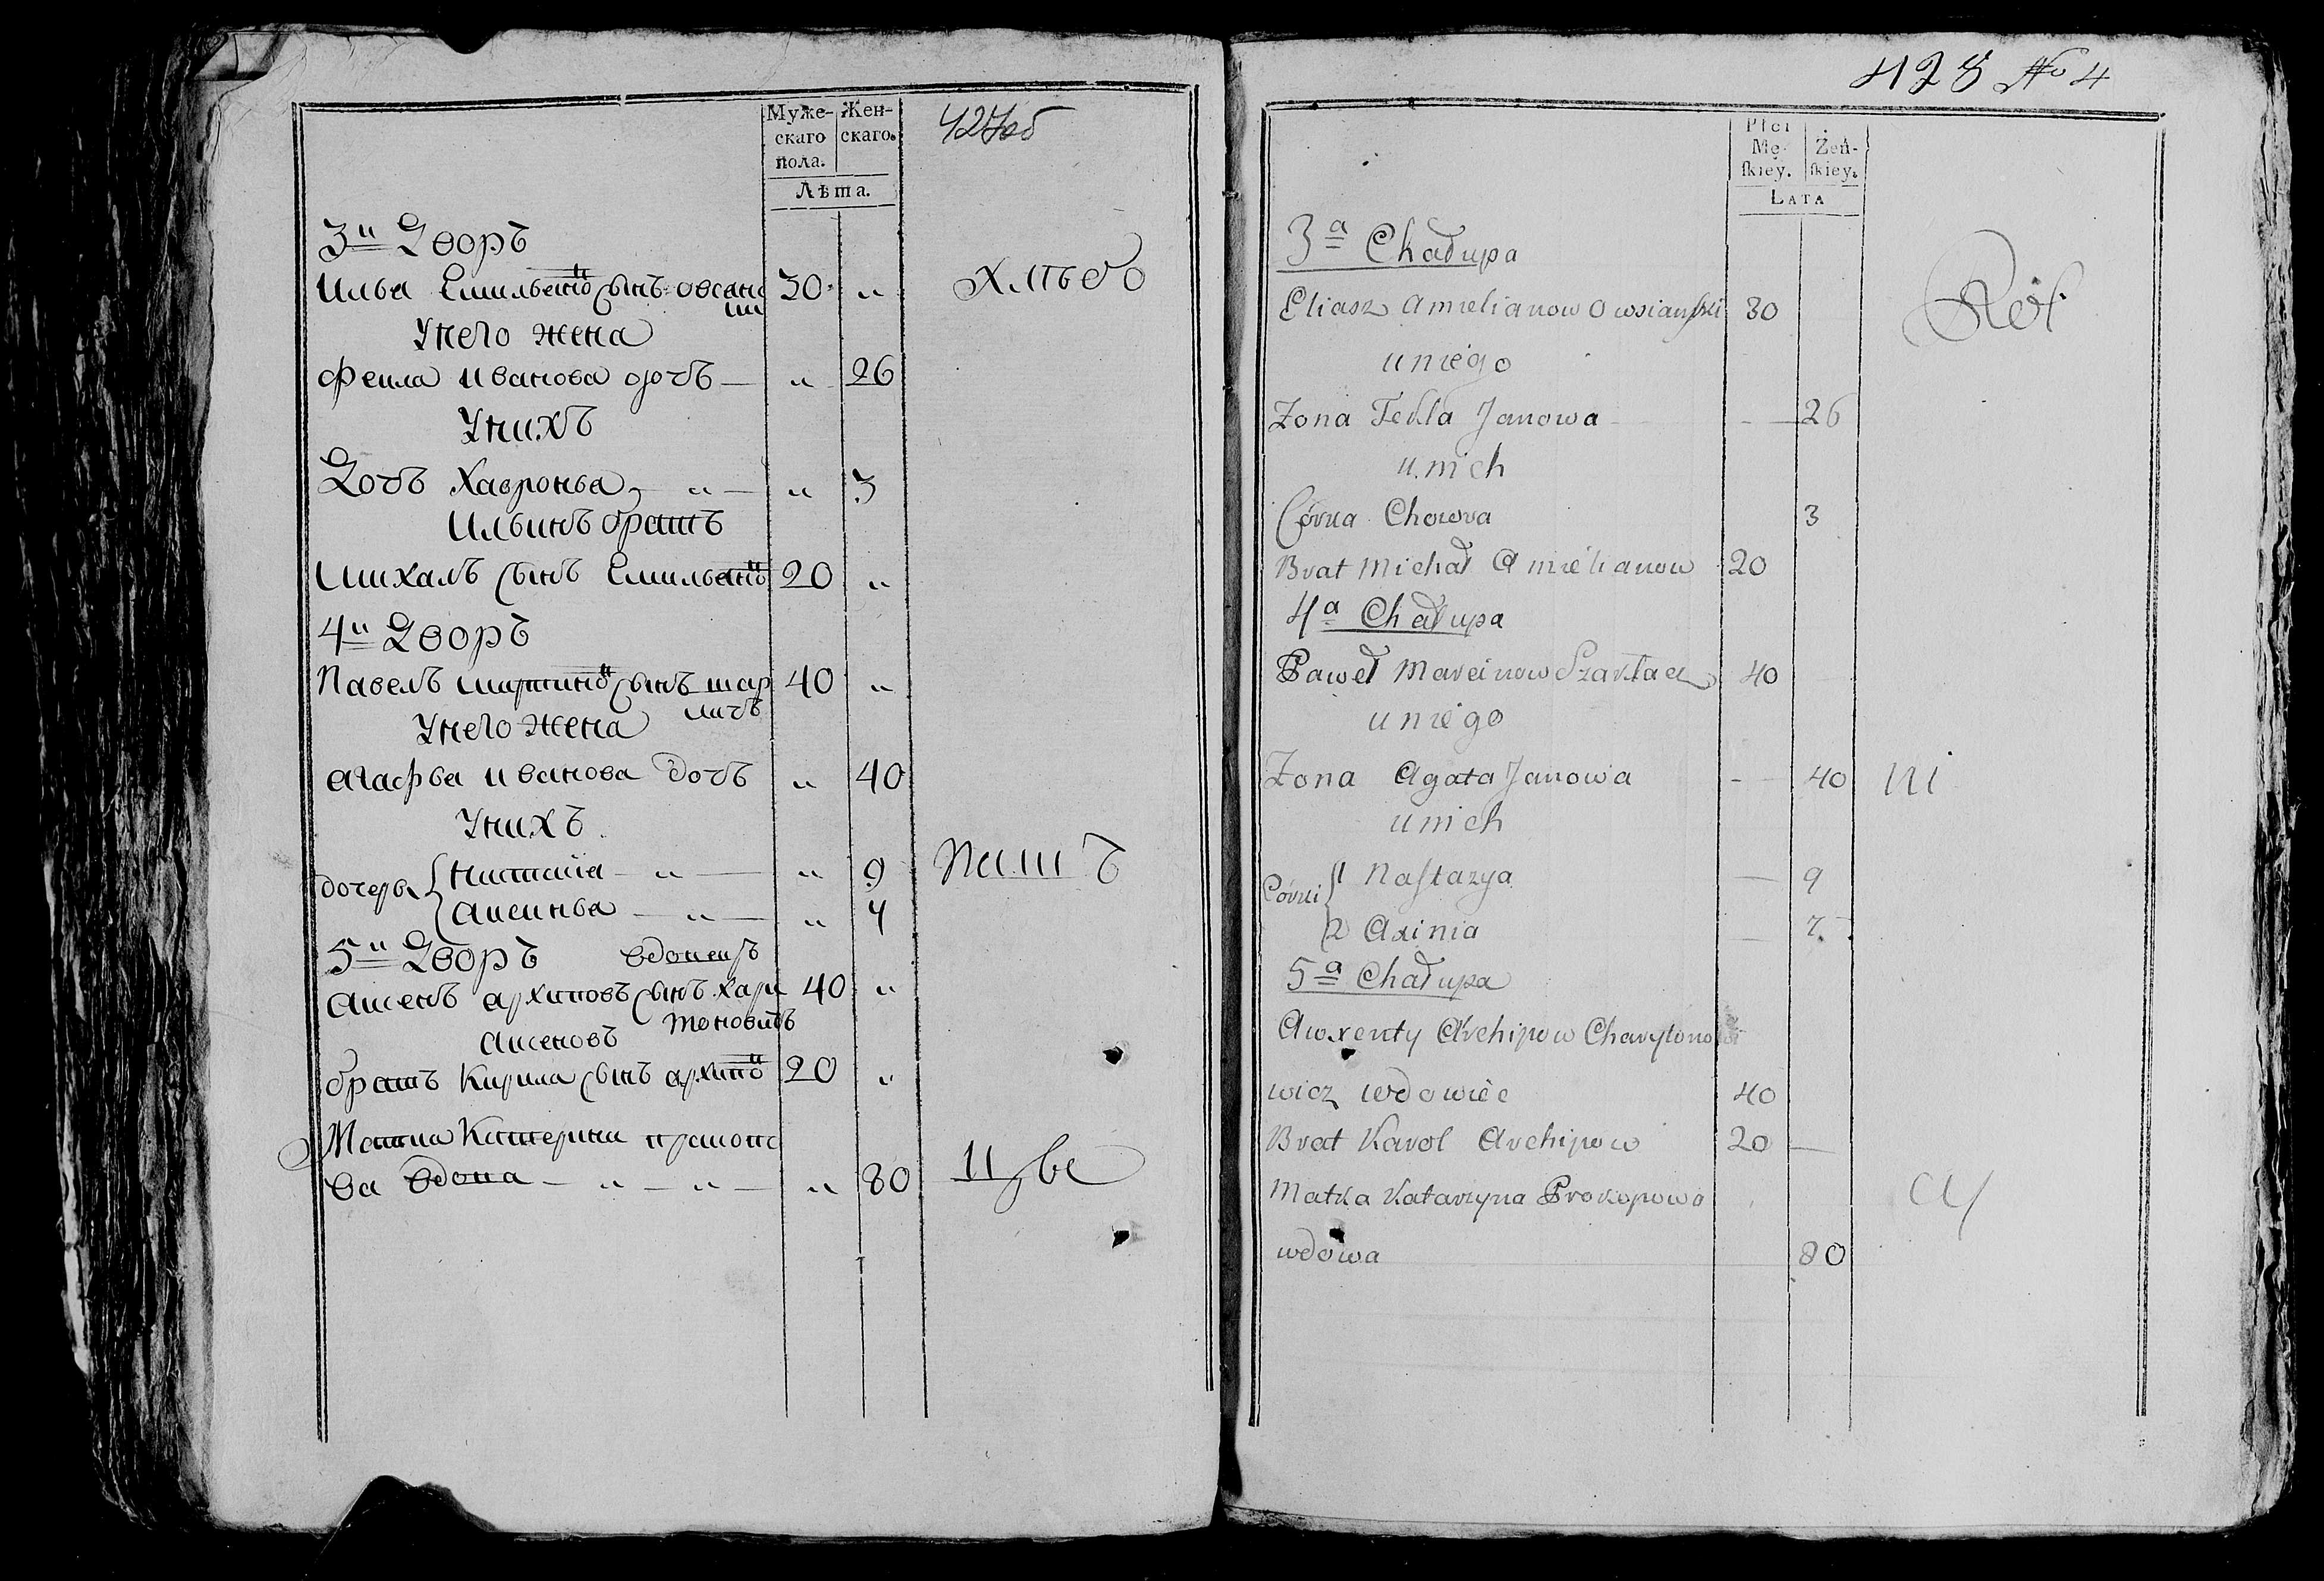 Муже-
скаго
пола.
Жен-
скаго.
Лѣта.
427об
3й Дворъ
Илья Емильянов сынъ Овсянс 30 "
ки
У него жена
Фекла Иванова дочь — " 26
У нихъ
Дочь Хавронья — " — " 3
Ильинъ братъ
Михалъ сынъ Емильянов 20 "
4й Дворъ
Павелъ Мартинов сынъ Шар 40 "
лачъ
У него жена
Агафья Иванова дочь " 40
У нихъ
дочеры { Настася — " — " 9
Аксинья — " — " 7
5й Дворъ вдовецъ
Аксенъ Архиповъ сынъ Хари 40 "
тоновичъ
Аксеновъ
братъ Кирила сынъ Архипов 20 "
Матка Катерина Прокопо
ва вдова — " — " — " 80
Хлѣбо
Пашъ
428 No 4
Płci
Mę-
ſkiey.
Żeń-
ſkiey.
LATA
3a Chałupa
Eliasz Amelianow Owsianſki 30
u niego
Zona Tekla Janowa - — 26
u nich
Córka Chowra 3
Brat Michał Amelianow 20
4a Chałupa
Paweł Marcinow Szarłacz 40
u niego
Zona Agata Janowa - — 40
u nich
Córki { 1 Naſtazya — 9
2 Axinia — 7
5a Chałupa
Awxenty Archipow Charytono
wicz wdowiec 40
Brat Karol Archipow 20 —
Matka Katarzyna Prokopowa
wdowa 80
Rol
ni
cy